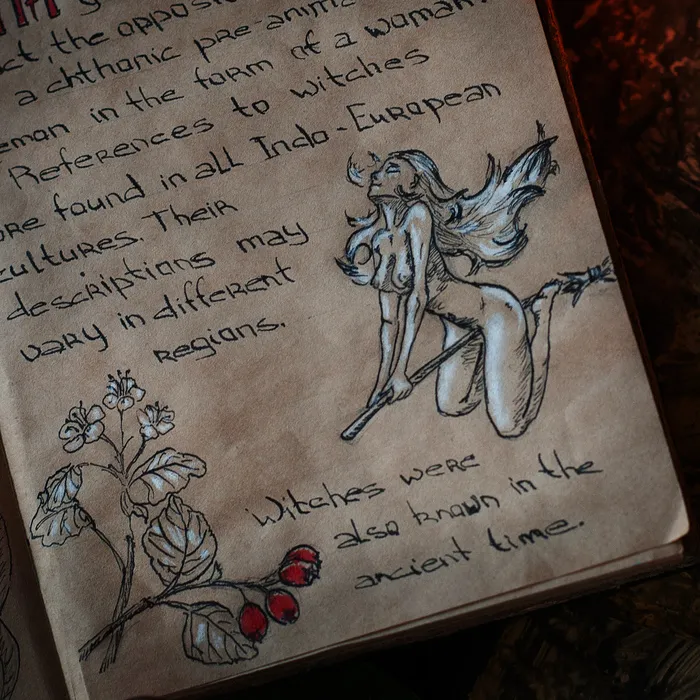 the opposi
a chthonic pre-anim
eman in the form of a woman.
References to witches
ore found in all Indo-European
cultures. Their
descriptions may
vary in different
regions.
Witches were
also known in the
ancient time.